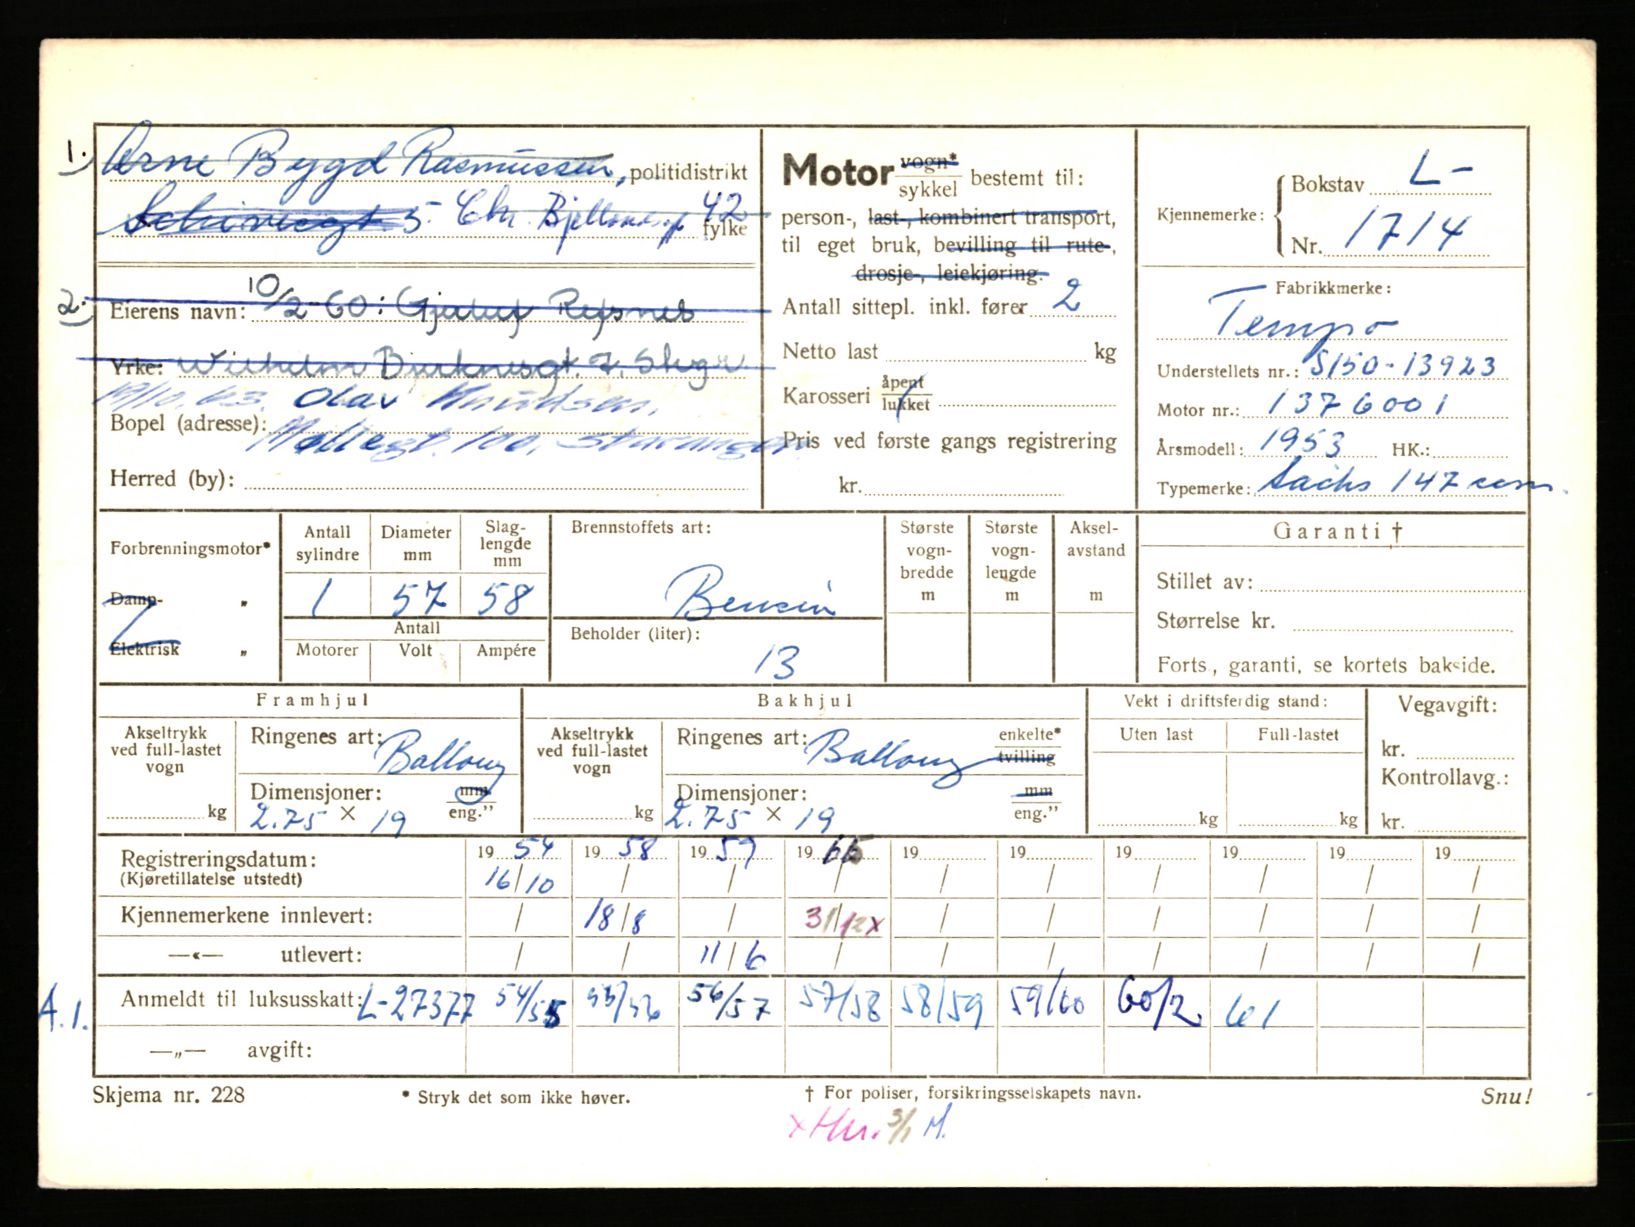 1.) Arne Bygd Rasmussen, politidistrikt
5. Chr. 42
fylke
2.) Eierens navn: 10/2-60: Refsnes
Yrke: Wilhelm
19/10.63. Olav Knudsen.
Bopel (adresse): Møllegt. 100, Stavanger
Herred (by):
Motor vogn*
sykkel bestemt til:
person-, last-, kombinert transport,
til eget bruk, bevilling til rute-,
drosje-, leiekjøring.
Antall sittepl. inkl. fører 2
Netto last kg
Karosseri åpent
lukket
Pris ved første gangs registrering
kr.
Kjennemerke: Bokstav L-
Nr. 1714
Fabrikkmerke:
Tempo
Understellets nr.: S150-13923
Motor nr.: 1376001
Årsmodell: 1953 HK.:
Typemerke: Sachs 147 ccm.
Forbrenningsmotor*
Damp- „
Elektrisk „
Antall sylindre Diameter mm Slag-lengde mm
1 57 58
Antall
Motorer Volt Ampére
Brennstoffets art:
Bensin
Beholder (liter):
13
Største vogn-bredde m
Største vogn-lengde m
Aksel-avstand m
Garanti †
Stillet av:
Størrelse kr.
Forts., garanti, se kortets bakside.
Framhjul
Akseltrykk ved full-lastet vogn kg
Ringenes art: Ballong
Dimensjoner: mm
2.75 × 19 eng.”
Bakhjul
Akseltrykk ved full-lastet vogn kg
Ringenes art: Ballong enkelte*
tvilling
Dimensjoner: mm
2.75 × 19 eng.”
Vekt i driftsferdig stand:
Uten last Full-lastet
kg kg
Vegavgift:
kr.
Kontrollavg.:
kr.
Registreringsdatum: 19 54 19 58 19 59 19 65 19 19 19 19 19 19
(Kjøretillatelse utstedt) 16/10 / / / / / / / / /
Kjennemerkene innlevert: / 18/8 / 31/12x / / / / / /
—«— utlevert: / / 11/6 / / / / / / /
A.1. Anmeldt til luksusskatt: L-27377 54/55 55/56 56/57 57/58 58/59 59/60 60/2. 61
—„— avgift:
Skjema nr. 228 * Stryk det som ikke høver. † For poliser, forsikringsselskapets navn. Snu!